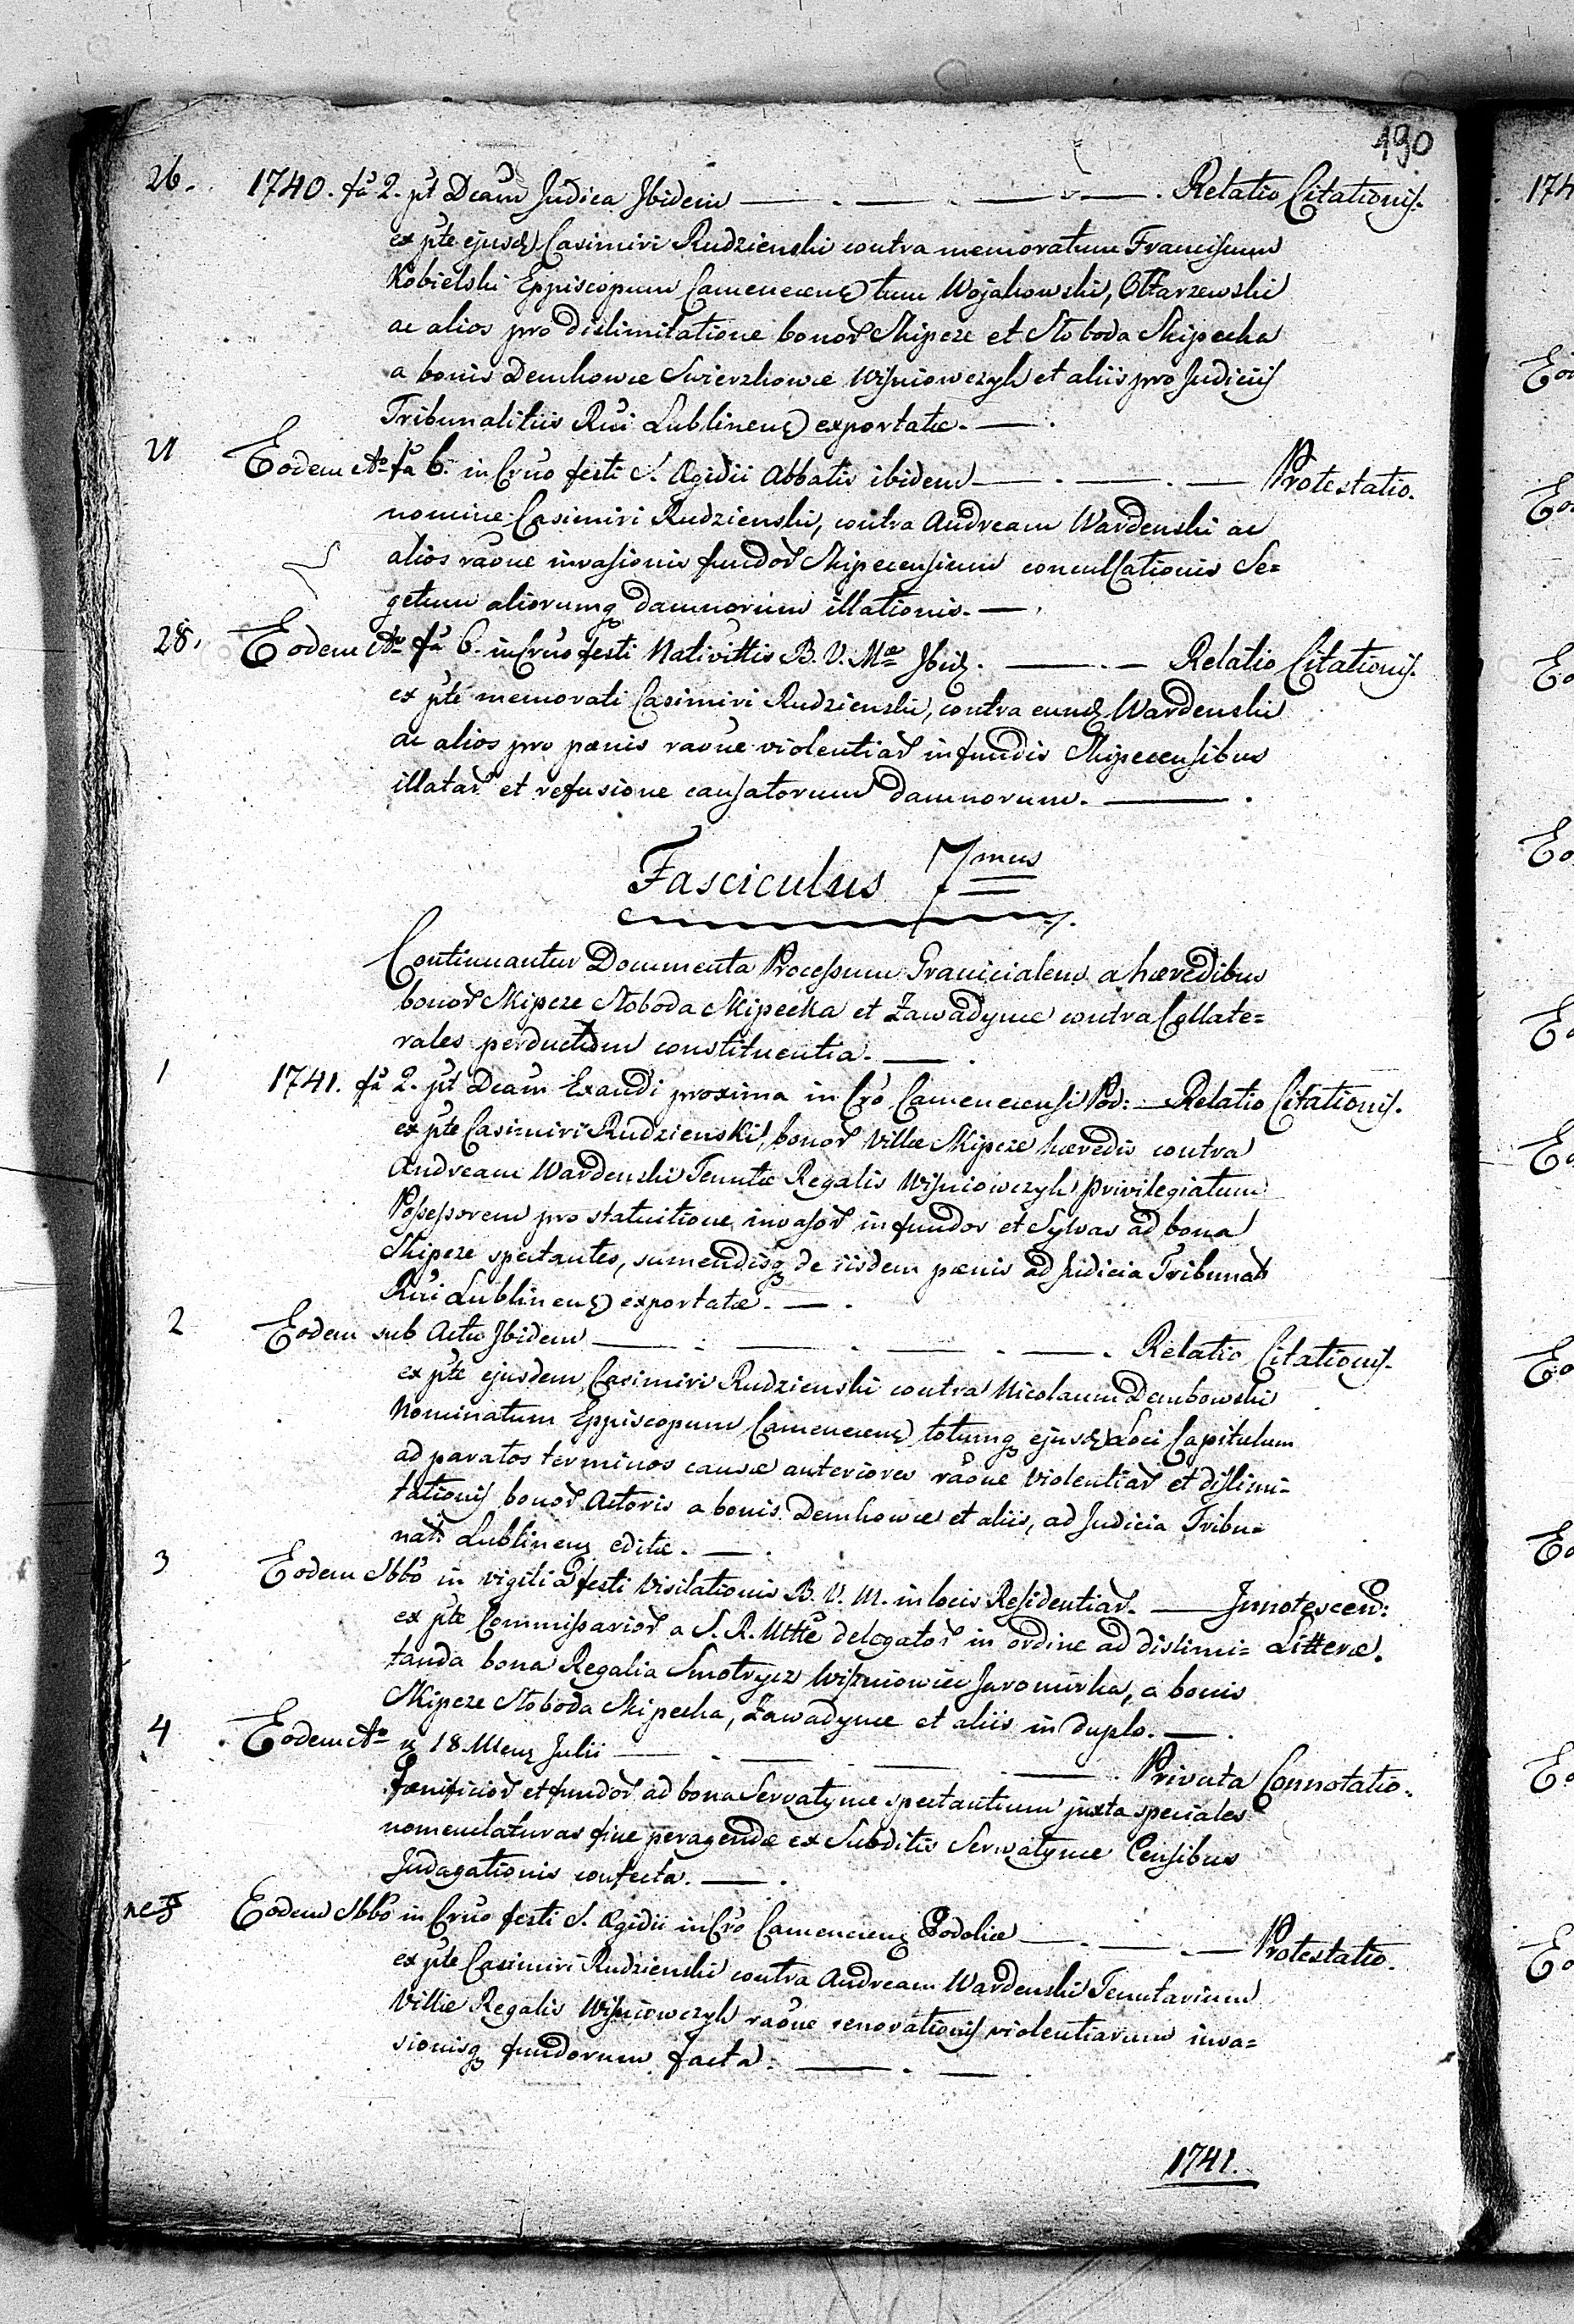 190
26. 1740. fa 2. pt Dcam Judica Ibidem — . — . — . — . Relatio Citationis.
ex pte ejusd Casimiri Rudzienski contra memoratum Francisum
Kobielski Eppiscopum Camenecens tum Wojakowski, Ołtarzewski
ac alios pro dislimitatione bonor Skipcze et Słoboda Skipecka
a bonis Demkowce Swierzkowce Wisniowczyk et aliis pro Judiciis
Tribunalitiis Rni Lublinens exportatæ. — .
27 Eodem Ao fa 6. in Crno festi S. Ægidii Abbatis ibidem — . — . — Protestatio.
nomine Casimiri Rudzienski, contra Andream Wardenski ac
alios raõne invasionis fundor Skipecensium conculcationis Se=
getum aliorumq damnorum illationis. — .
28. Eodem Ao fa 6. in Crno festi Nativittis B. V. Mæ Ibid. — . — Relatio Citationis.
ex pte memorati Casimiri Rudzienski, contra eund Wardenski
ac alios pro pænis raõne violentiar in fundis Skipecensibus
illatar et refusione causatorum damnorum. — .
Fasciculus 7mus
Continuantur Documenta Processum Granicialem a hæredibus
bonor Skipcze Słoboda Skipecka et Zawadynce contra Collate=
rales perductum constituentia. — .
1 1741. fa 2. pt Dcam Exaudi proxima in Cro Camenecensi Pod: — Relatio Citationis.
ex pte Casimiri Rudzienski, bonor Villæ Skipcze hæredis contra
Andream Wardenski Tenutæ Regalis Wisniowczyk privilegiatum
Possessorem pro statuitione invasor in fundos et Sylvas ad bona
Skipcze spectantes, sumendisq de iisdem pænis ad Judicia Tribunal
Rni Lublinens exportatæ. — .
2 Eodem sub Actu Ibidem — . — . — . — . Relatio Citationis.
ex pte ejusdem Casimiri Rudzienski contra Nicolaum Dembowski
Nominatum Eppiscopum Camenecens totumq ejusd Loci Capitulum
ad paratos terminos causæ anteriores raõne violentiar et dislimi=
tationis bonor Actoris a bonis Demkowce et aliis, ad Judicia Tribu=
nal Lublinens editæ. — .
3 Eodem Abbo in vigilia festi Visitationis B. V. M. in locis Residentiar. — Innotescen:
ex pte Commissarior a S. R. Mtte delegator in ordine ad dislimi= Litteræ.
tanda bona Regalia Smotrycz Wiszniowiec Jaromirka, a bonis
Skipcze Słoboda Skipecka, Zawadynce et aliis in duplo. — .
4 Eodem Ao 18 Mens Julii — . — . — . — . Privata Connotatio.
fænificior et fundor ad bona Serwatynce spectantium juxta speciales
nomenclaturas fine peragendæ ex Subditis Serwatynce Censibus
Indagationis confecta. — .
5 Eodem Abbo in Crno festi S. Ægidii in Cro Camenecens Podoliæ — . — . — Protestatio.
ex pte Casimiri Rudzienski contra Andream Wardenski Tenutarium
Villæ Regalis Wisniowczyk raõne renovationis violentiarum inva=
sionisq fundorum facta. — . —
1741.